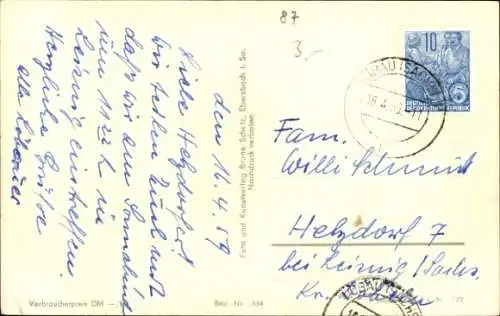 87
3,-
den 16.4.59
Liebe Helzdorfer!
wir teilen Euch mit
daß wir am Sonnabend
um 11 22 h in
Leisnig eintreffen.
Herzliche Grüße
alle Löbauer
Foto und Kunstverlag Bruno Scholz, Ebersbach i. Sa.
Nachdruck verboten
10
DEUTSCHE
DEMOKRATISCHE REPUBLIK
5
LÖBAU (SACHS)
16.4.59
Fam.
Willi Schmidt
Helzdorf 7
bei Leisnig / Sachs.
Kr.
Verbraucherpreis DM
Best.-Nr. 334